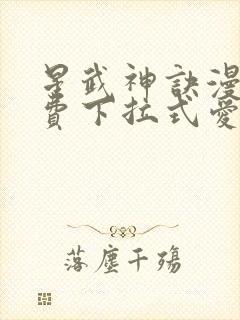 星武神訣漫
費下拉式愛
落塵千殤